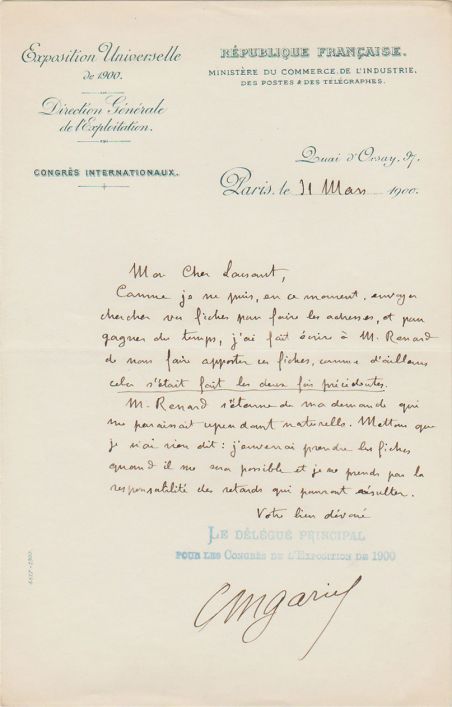 Exposition Universelle
de 1900.
Direction Générale
de l'Exploitation.
CONGRÈS INTERNATIONAUX.
RÉPUBLIQUE FRANÇAISE.
MINISTÈRE DU COMMERCE, DE L'INDUSTRIE,
DES POSTES & DES TÉLÉGRAPHES.
Quai d'Orsay, 97.
Paris, le 31 Mars 1900.
Mon Cher Laussant,
Comme je ne puis, en ce moment, envoyer
chercher vos fiches pour faire les adresses, et pour
gagner du temps, j'ai fait écrire à M. Renard
de nous faire apporter ces fiches, comme d'ailleurs
cela s'était fait les deux fois précédentes.
M. Renard s'étonne de ma demande qui
me paraissait cependant naturelle. Mettons que
je n'ai rien dit : j'enverrai prendre les fiches
quand il me sera possible et je ne prends pas la
responsabilité des retards qui pourront résulter.
Votre bien dévoué
LE DÉLÉGUÉ PRINCIPAL
POUR LES CONGRÈS DE L'EXPOSITION DE 1900
CM Gariel